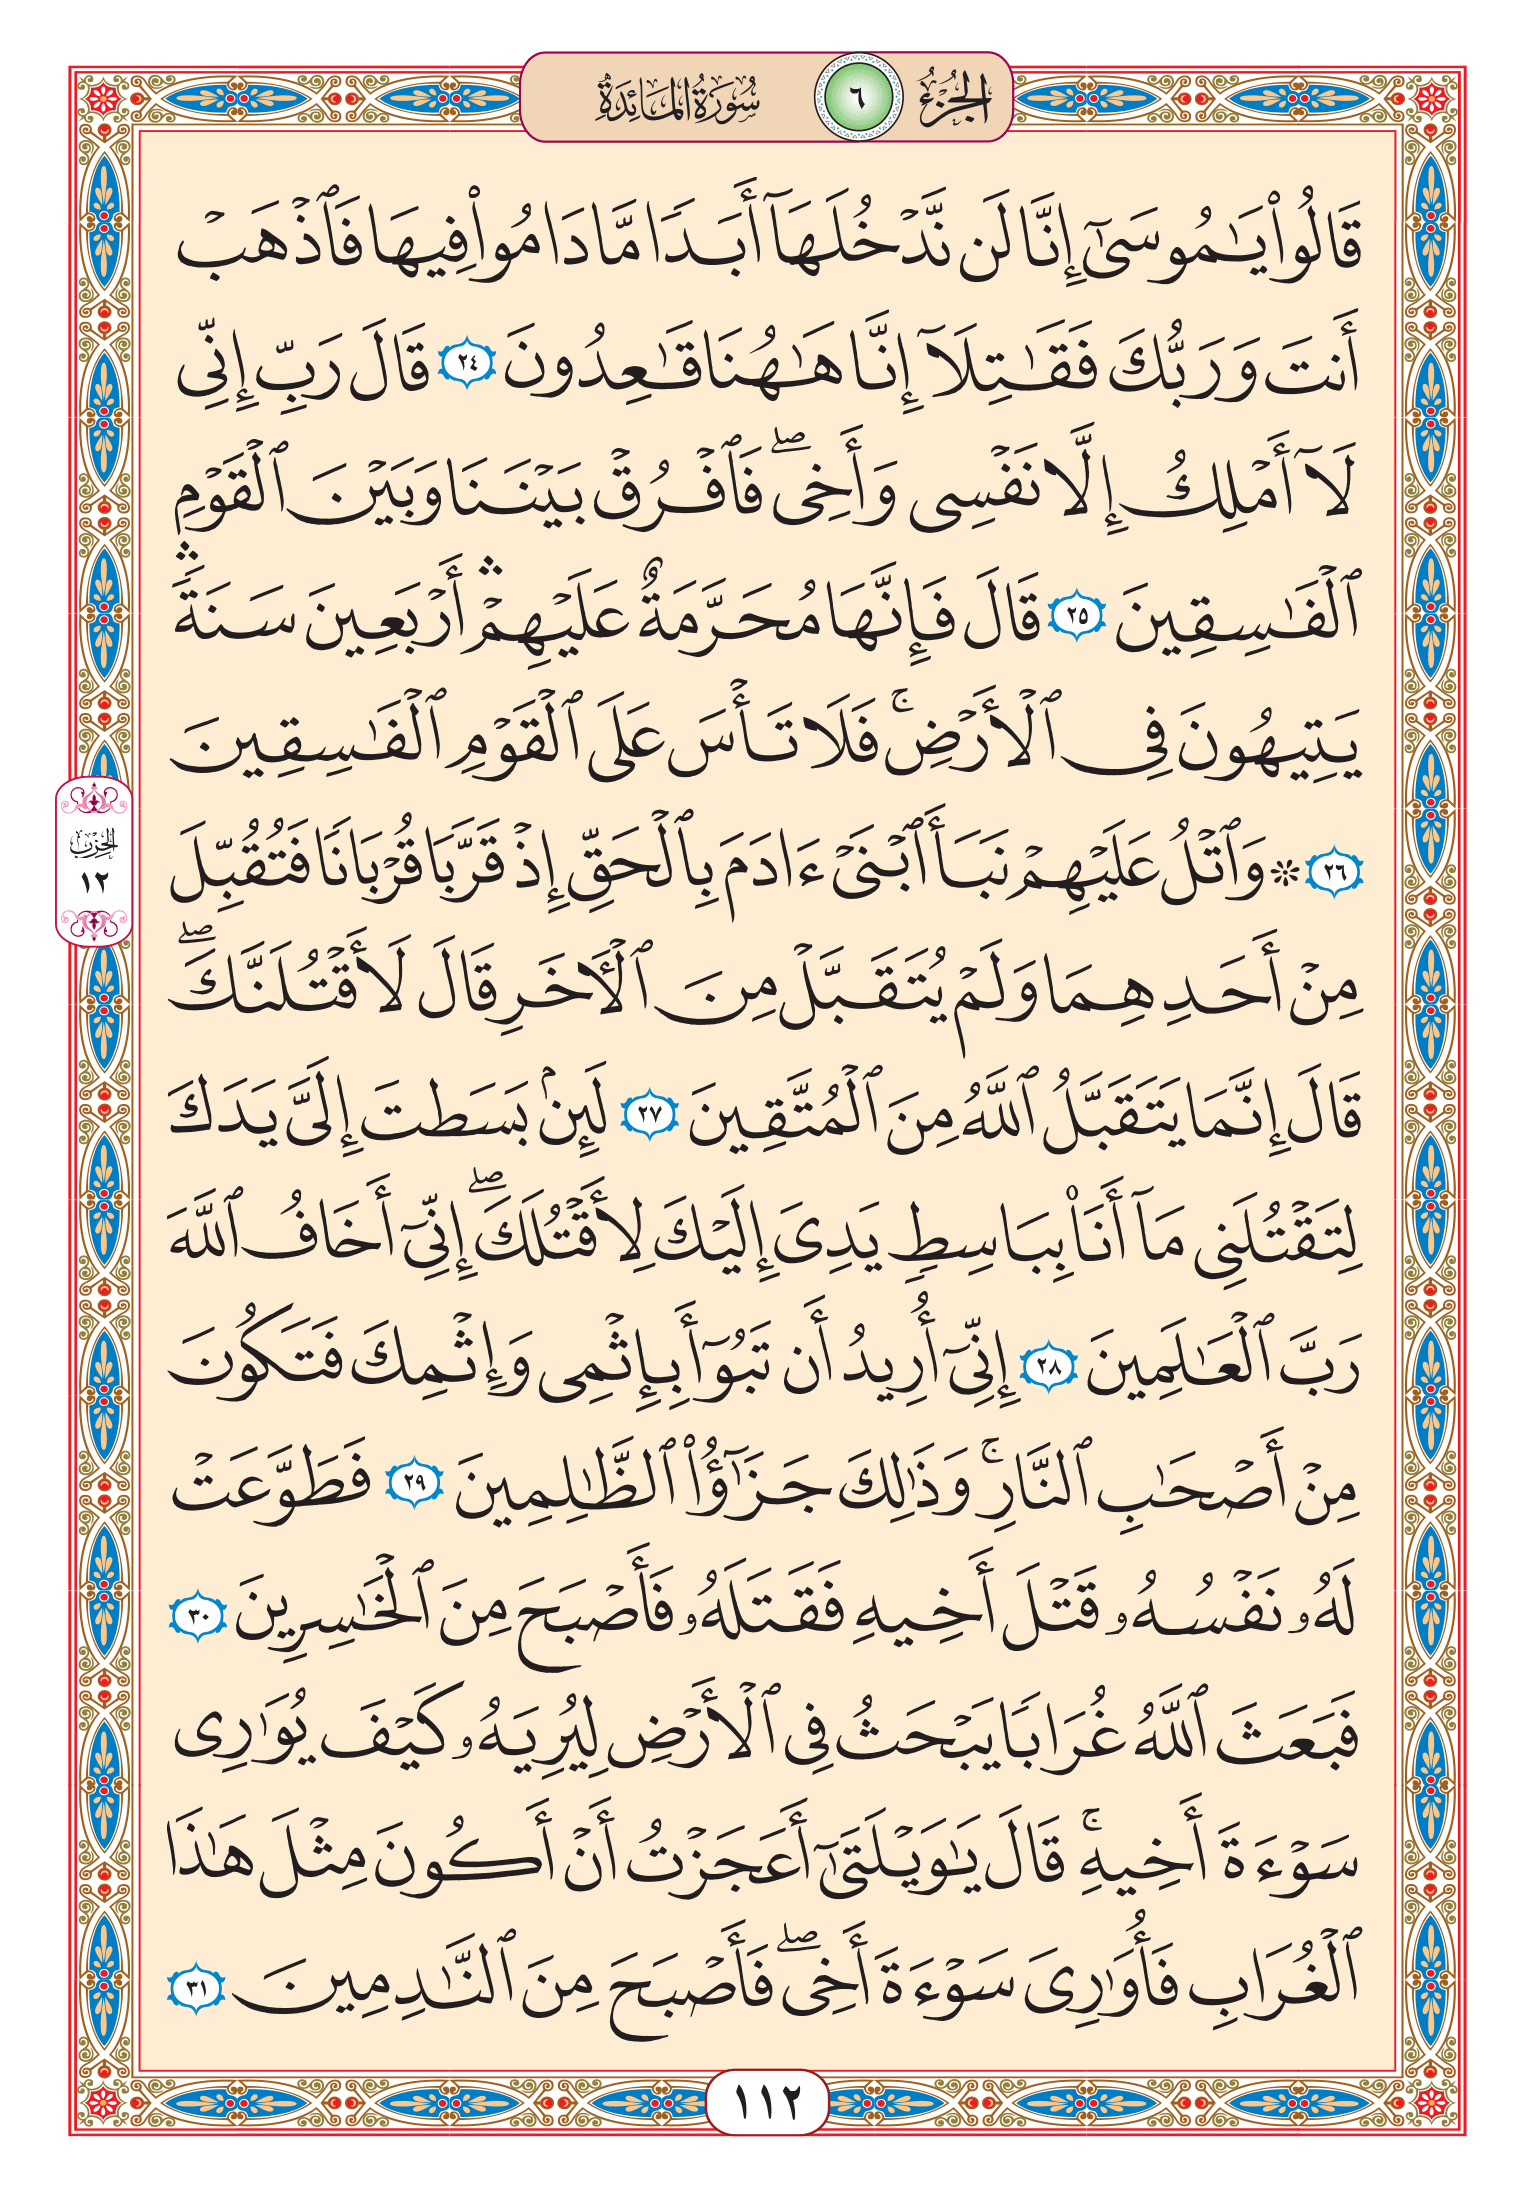 الجزء ٦ سورة المائدة
قَالُوا۟ يَـٰمُوسَىٰٓ إِنَّا لَن نَّدْخُلَهَآ أَبَدًا مَّا دَامُوا۟ فِيهَا فَٱذْهَبْ
أَنتَ وَرَبُّكَ فَقَـٰتِلَآ إِنَّا هَـٰهُنَا قَـٰعِدُونَ ٢٤ قَالَ رَبِّ إِنِّى
لَآ أَمْلِكُ إِلَّا نَفْسِى وَأَخِى ۖ فَٱفْرُقْ بَيْنَنَا وَبَيْنَ ٱلْقَوْمِ
ٱلْفَـٰسِقِينَ ٢٥ قَالَ فَإِنَّهَا مُحَرَّمَةٌ عَلَيْهِمْ ۛ أَرْبَعِينَ سَنَةً ۛ
يَتِيهُونَ فِى ٱلْأَرْضِ ۚ فَلَا تَأْسَ عَلَى ٱلْقَوْمِ ٱلْفَـٰسِقِينَ
٢٦ ۞ وَٱتْلُ عَلَيْهِمْ نَبَأَ ٱبْنَىْ ءَادَمَ بِٱلْحَقِّ إِذْ قَرَّبَا قُرْبَانًا فَتُقُبِّلَ
مِنْ أَحَدِهِمَا وَلَمْ يُتَقَبَّلْ مِنَ ٱلْـَٔاخَرِ قَالَ لَأَقْتُلَنَّكَ ۖ
قَالَ إِنَّمَا يَتَقَبَّلُ ٱللَّهُ مِنَ ٱلْمُتَّقِينَ ٢٧ لَئِنۢ بَسَطتَ إِلَىَّ يَدَكَ
لِتَقْتُلَنِى مَآ أَنَا۠ بِبَاسِطٍ يَدِىَ إِلَيْكَ لِأَقْتُلَكَ ۖ إِنِّىٓ أَخَافُ ٱللَّهَ
رَبَّ ٱلْعَـٰلَمِينَ ٢٨ إِنِّىٓ أُرِيدُ أَن تَبُوٓأَ بِإِثْمِى وَإِثْمِكَ فَتَكُونَ
مِنْ أَصْحَـٰبِ ٱلنَّارِ ۚ وَذَٰلِكَ جَزَٰٓؤُا۟ ٱلظَّـٰلِمِينَ ٢٩ فَطَوَّعَتْ
لَهُۥ نَفْسُهُۥ قَتْلَ أَخِيهِ فَقَتَلَهُۥ فَأَصْبَحَ مِنَ ٱلْخَـٰسِرِينَ ٣٠
فَبَعَثَ ٱللَّهُ غُرَابًا يَبْحَثُ فِى ٱلْأَرْضِ لِيُرِيَهُۥ كَيْفَ يُوَٰرِى
سَوْءَةَ أَخِيهِ ۚ قَالَ يَـٰوَيْلَتَىٰٓ أَعَجَزْتُ أَنْ أَكُونَ مِثْلَ هَـٰذَا
ٱلْغُرَابِ فَأُوَٰرِىَ سَوْءَةَ أَخِى ۖ فَأَصْبَحَ مِنَ ٱلنَّـٰدِمِينَ ٣١
الحزب
١٢
١١٢